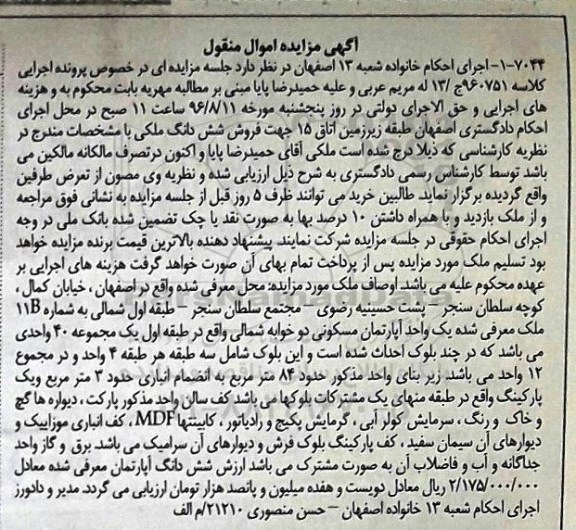 آگهی مزایده اموال منقول
۷۰۴۴-۱- اجرای احکام خانواده شعبه ۱۳ اصفهان در نظر دارد جلسه مزایده ای در خصوص پرونده اجرایی
کلاسه ۹۶۰۷۵۱ج /۱۳ له مریم عربی و علیه حمیدرضا پایا مبنی بر مطالبه مهریه بابت محکوم به و هزینه
های اجرایی و حق الاجرای دولتی در روز پنجشنبه مورخه ۹۶/۸/۱۱ ساعت ۱۱ صبح در محل اجرای
احکام دادگستری اصفهان طبقه زیرزمین اتاق ۱۵ جهت فروش شش دانگ ملکی با مشخصات مندرج در
نظریه کارشناسی که ذیلا درج شده است ملکی آقای حمیدرضا پایا و اکنون درتصرف مالکانه مالکین می
باشد توسط کارشناس رسمی دادگستری به شرح ذیل ارزیابی شده و نظریه وی مصون از تعرض طرفین
واقع گردیده برگزار نماید. طالبین خرید می توانند ظرف ۵ روز قبل از جلسه مزایده به نشانی فوق مراجعه
و از ملک بازدید و با همراه داشتن ۱۰ درصد بها به صورت نقد یا چک تضمین شده بانک ملی در وجه
اجرای احکام حقوقی در جلسه مزایده شرکت نمایند. پیشنهاد دهنده بالاترین قیمت برنده مزایده خواهد
بود تسلیم ملک مورد مزایده پس از پرداخت تمام بهای آن صورت خواهد گرفت هزینه های اجرایی بر
عهده محکوم علیه می باشد. اوصاف ملک مورد مزایده: محل معرفی شده واقع در اصفهان ، خیابان کمال ،
کوچه سلطان سنجر – پشت حسینیه رضوی – مجتمع سلطان سنجر – طبقه اول شمالی به شماره ۱۱B
ملک معرفی شده یک واحد آپارتمان مسکونی دو خوابه شمالی واقع در طبقه اول یک مجموعه ۴۰ واحدی
می باشد که در چند بلوک احداث شده است و این بلوک شامل سه طبقه هر طبقه ۴ واحد و در مجموع
۱۲ واحد می باشد. زیر بنای واحد مذکور حدود ۸۴ متر مربع به انضمام انباری حدود ۳ متر مربع ویک
پارکینگ واقع در طبقه منهای یک مشترکات بلوکها می باشد کف سالن واحد مذکور پارکت ، دیواره ها گچ
و خاک و رنگ ، سرمایش کولر آبی ، گرمایش پکیج و رادیاتور ، کابینتها MDF ، کف انباری موزاییک و
دیوارهای آن سیمان سفید ، کف پارکینگ بلوک فرش و دیوارهای آن سرامیک می باشد. برق و گاز واحد
جداگانه و آب و فاضلاب آن به صورت مشترک می باشد ارزش شش دانگ آپارتمان معرفی شده معادل
۲/۱۷۵/۰۰۰/۰۰۰ ریال معادل دویست و هفده میلیون و پانصد هزار تومان ارزیابی می گردد. مدیر و دادورز
اجرای احکام شعبه ۱۳ خانواده اصفهان – حسن منصوری ۲۱۲۱۰/م الف